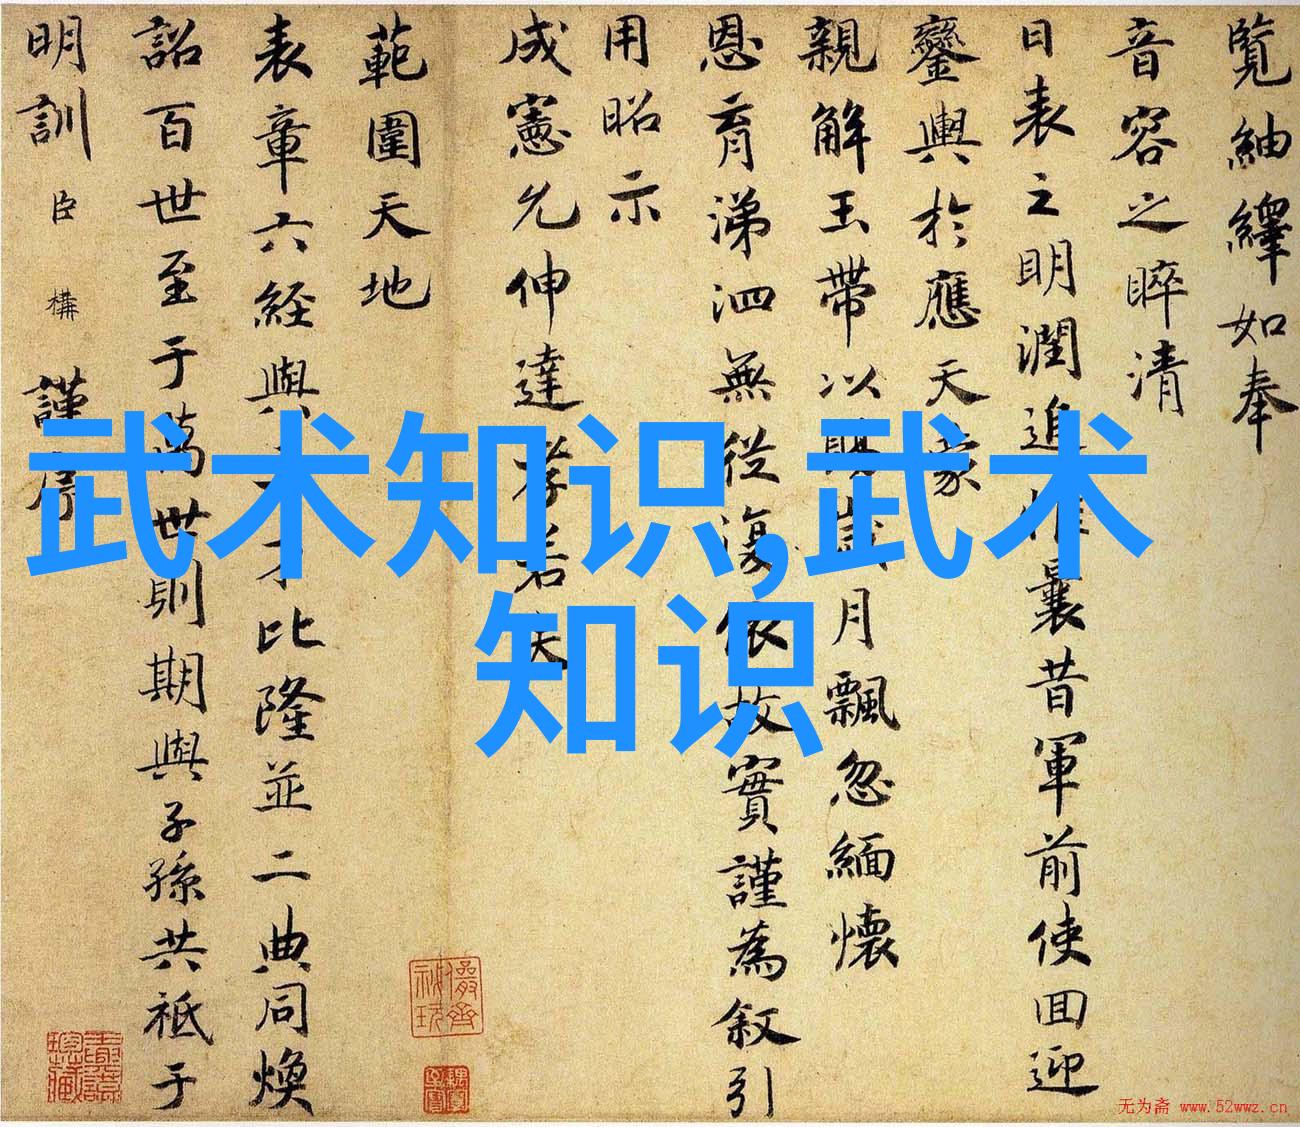 覽紬繹如奉
音容之睟清
日表之明潤追惟曩昔軍前使回迎
鑾輿於應天家
親解玉帶以賜歲月飄忽緬懷
恩育涕泗無從復依故實謹為叙引
用昭示
成憲允伸達孝若夫
範圍天地
表章六经與三才比隆並二典同煥
詔百世至于萬世則期與子孫共祗于
明訓臣構謹序
武术知识,武术
知识
无为斋 www.52wwz.cn